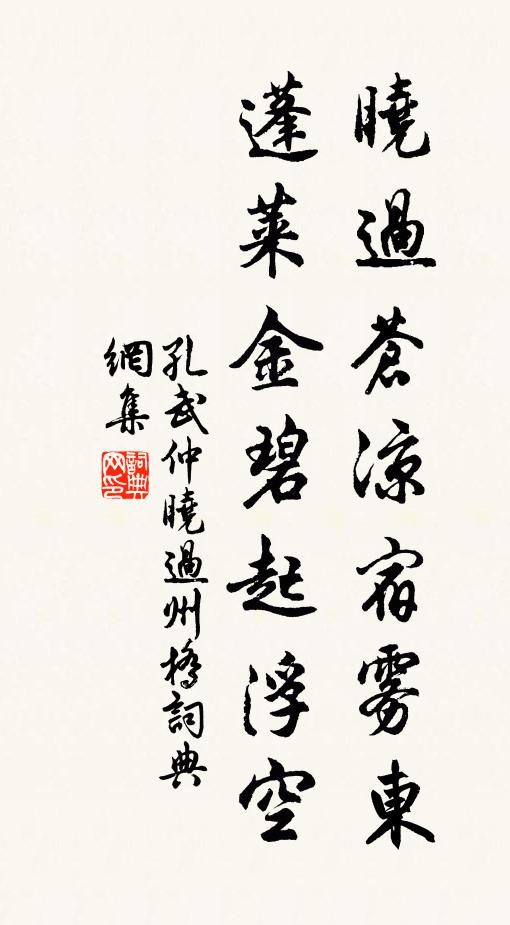 曉過蒼涼宿雾東
蓬萊金碧起浮空
孔武仲曉過州橋詞典
網集
詞典
网印